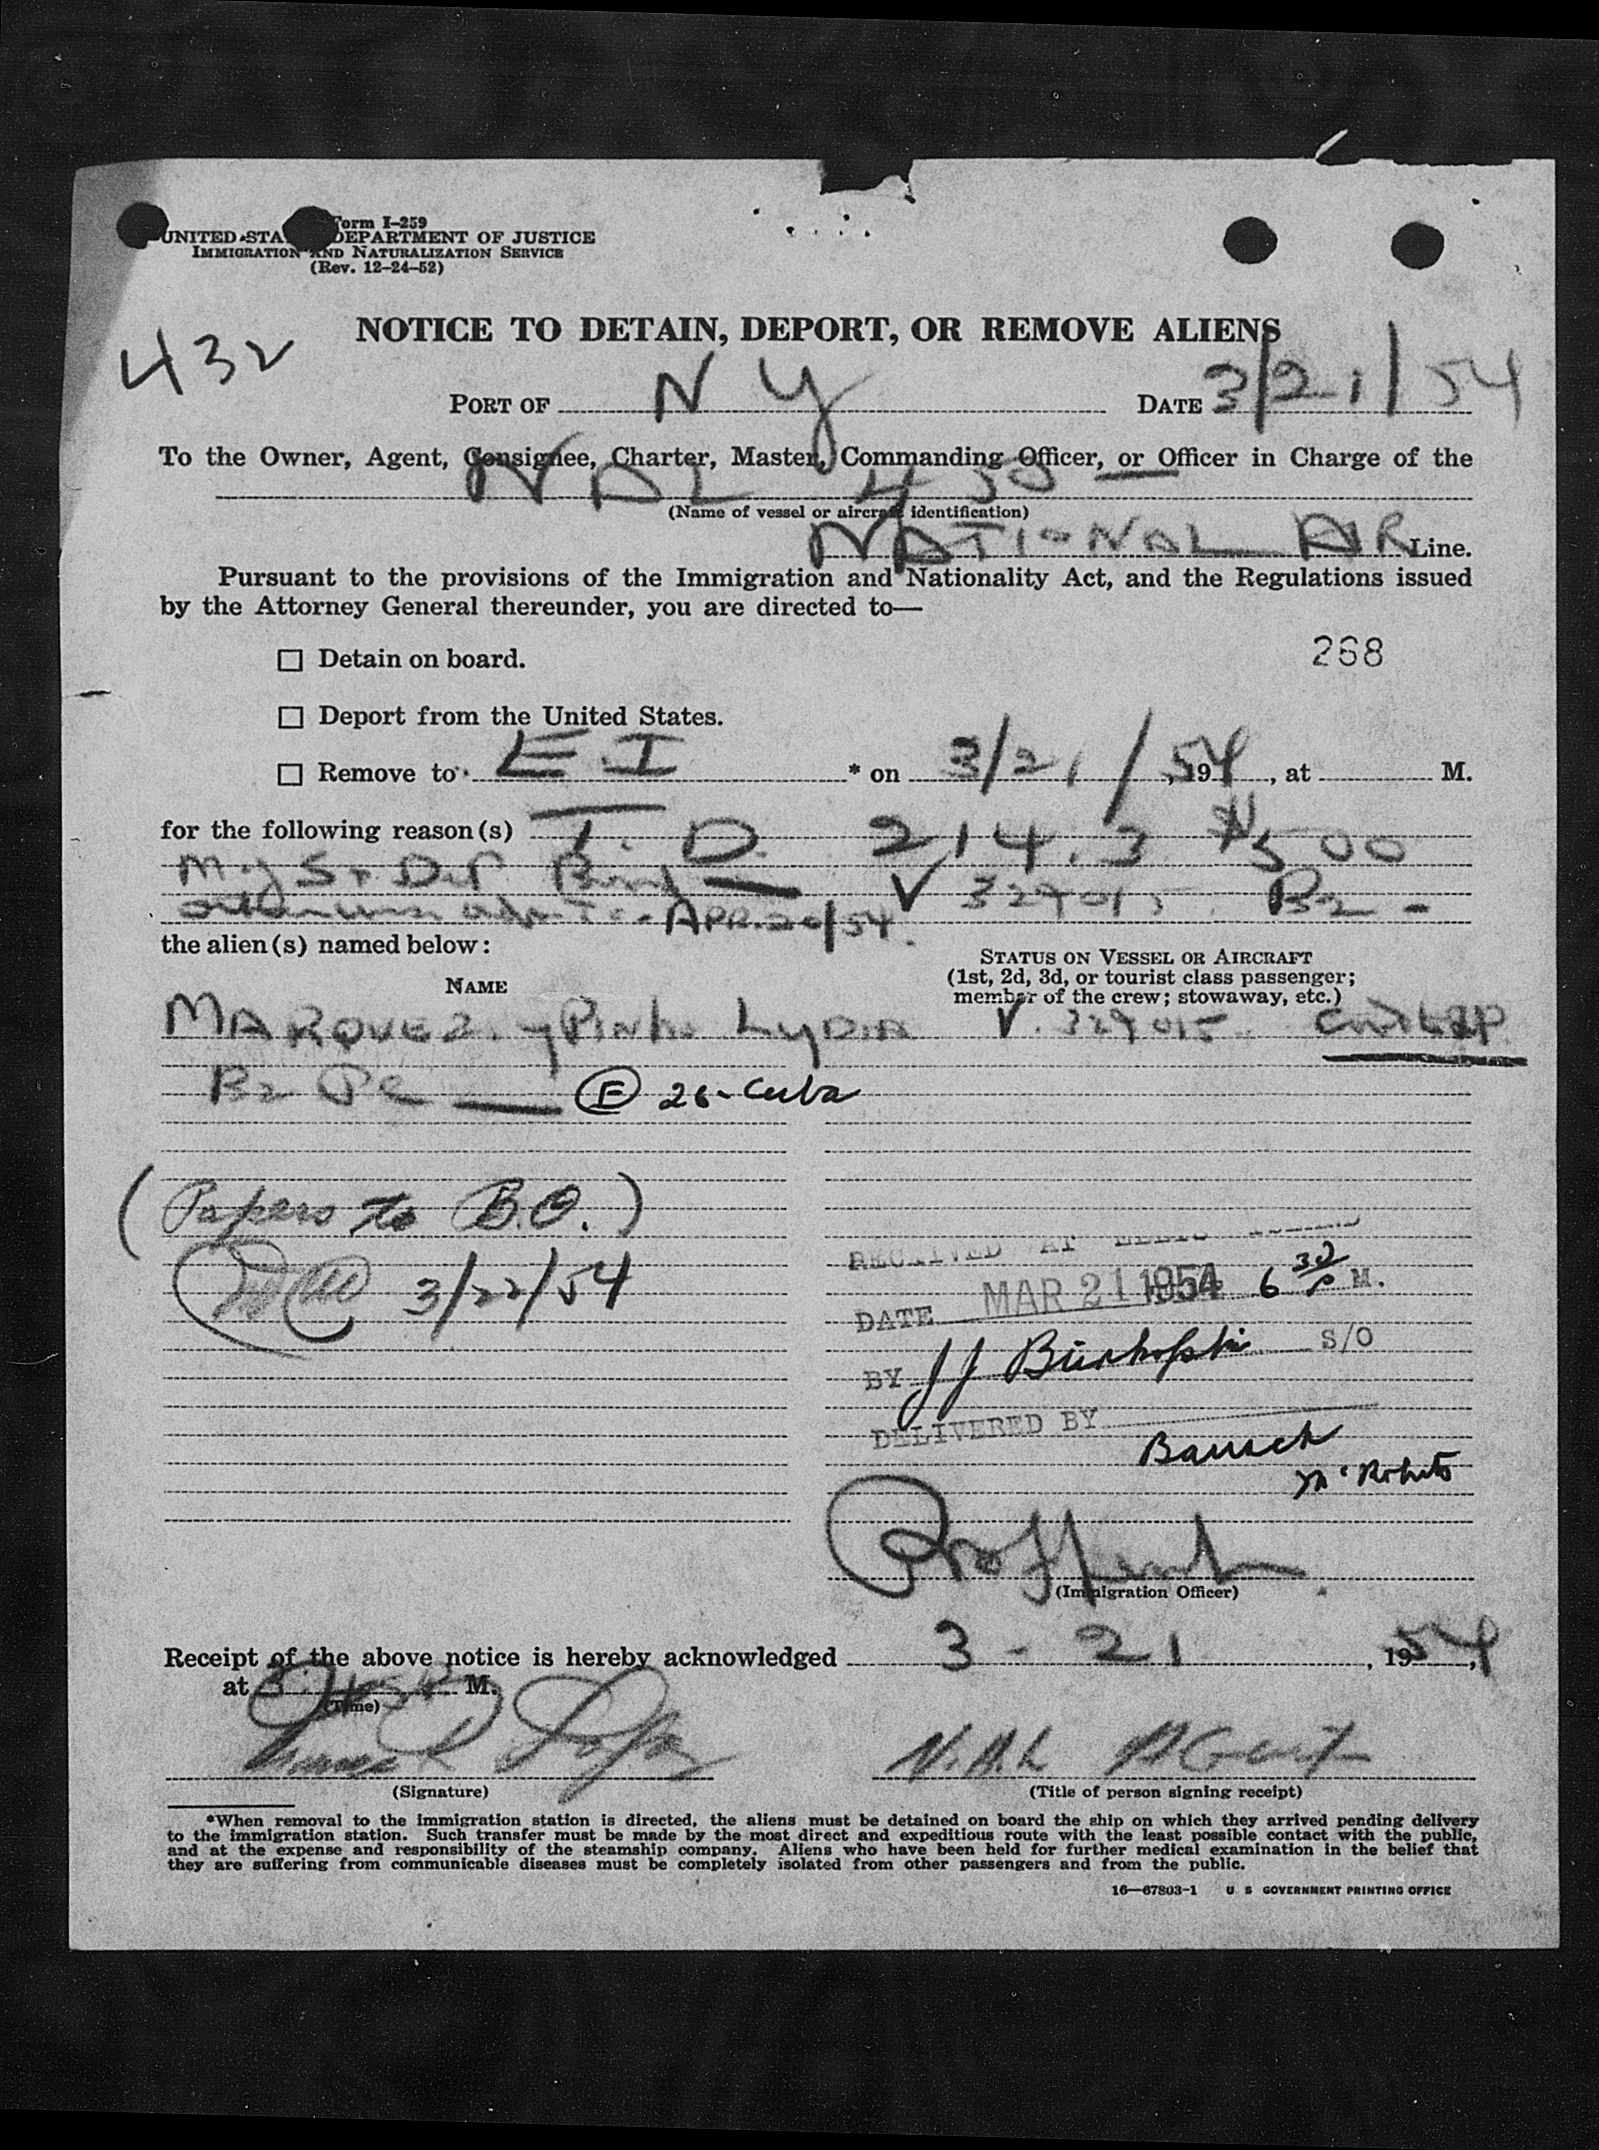 Form I-259
UNITED STA DEPARTMENT OF JUSTICE
IMMIGRATION AND NATURALIZATION SERVICE
(Rev. 12-24-52)
432
NOTICE TO DETAIN, DEPORT, OR REMOVE ALIENS
PORT OF N Y DATE 3/21/54
To the Owner, Agent, Consignee, Charter, Master, Commanding Officer, or Officer in Charge of the
NAL 430
(Name of vessel or aircraft identification)
NATIONAL AIR Line.
Pursuant to the provisions of the Immigration and Nationality Act, and the Regulations issued
by the Attorney General thereunder, you are directed to—
☐ Detain on board. 268
☐ Deport from the United States.
☐ Remove to E.I * on 3/21/54, 19, at M.
for the following reason(s) T. D. 214.3 $500
V 329015 B2 -
APR. 20/54.
the alien(s) named below:
STATUS ON VESSEL OR AIRCRAFT
(1st, 2d, 3d, or tourist class passenger;
member of the crew; stowaway, etc.)
NAME
MARQUEZ y Pinho LYDIA V. 329015
B2 F 26-Cuba
(Papers to B.O.)
3/22/54
RECEIVED AT ELLIS ISLAND
DATE MAR 21 1954 6 30 P M.
BY J J S/O
DELIVERED BY
Barrack
McRoberts
(Immigration Officer)
Receipt of the above notice is hereby acknowledged 3 - 21, 1954,
at M.
(Time)
N.A.L Agent
(Signature) (Title of person signing receipt)
*When removal to the immigration station is directed, the aliens must be detained on board the ship on which they arrived pending delivery
to the immigration station. Such transfer must be made by the most direct and expeditious route with the least possible contact with the public,
and at the expense and responsibility of the steamship company. Aliens who have been held for further medical examination in the belief that
they are suffering from communicable diseases must be completely isolated from other passengers and from the public.
16—67803-1 U S GOVERNMENT PRINTING OFFICE